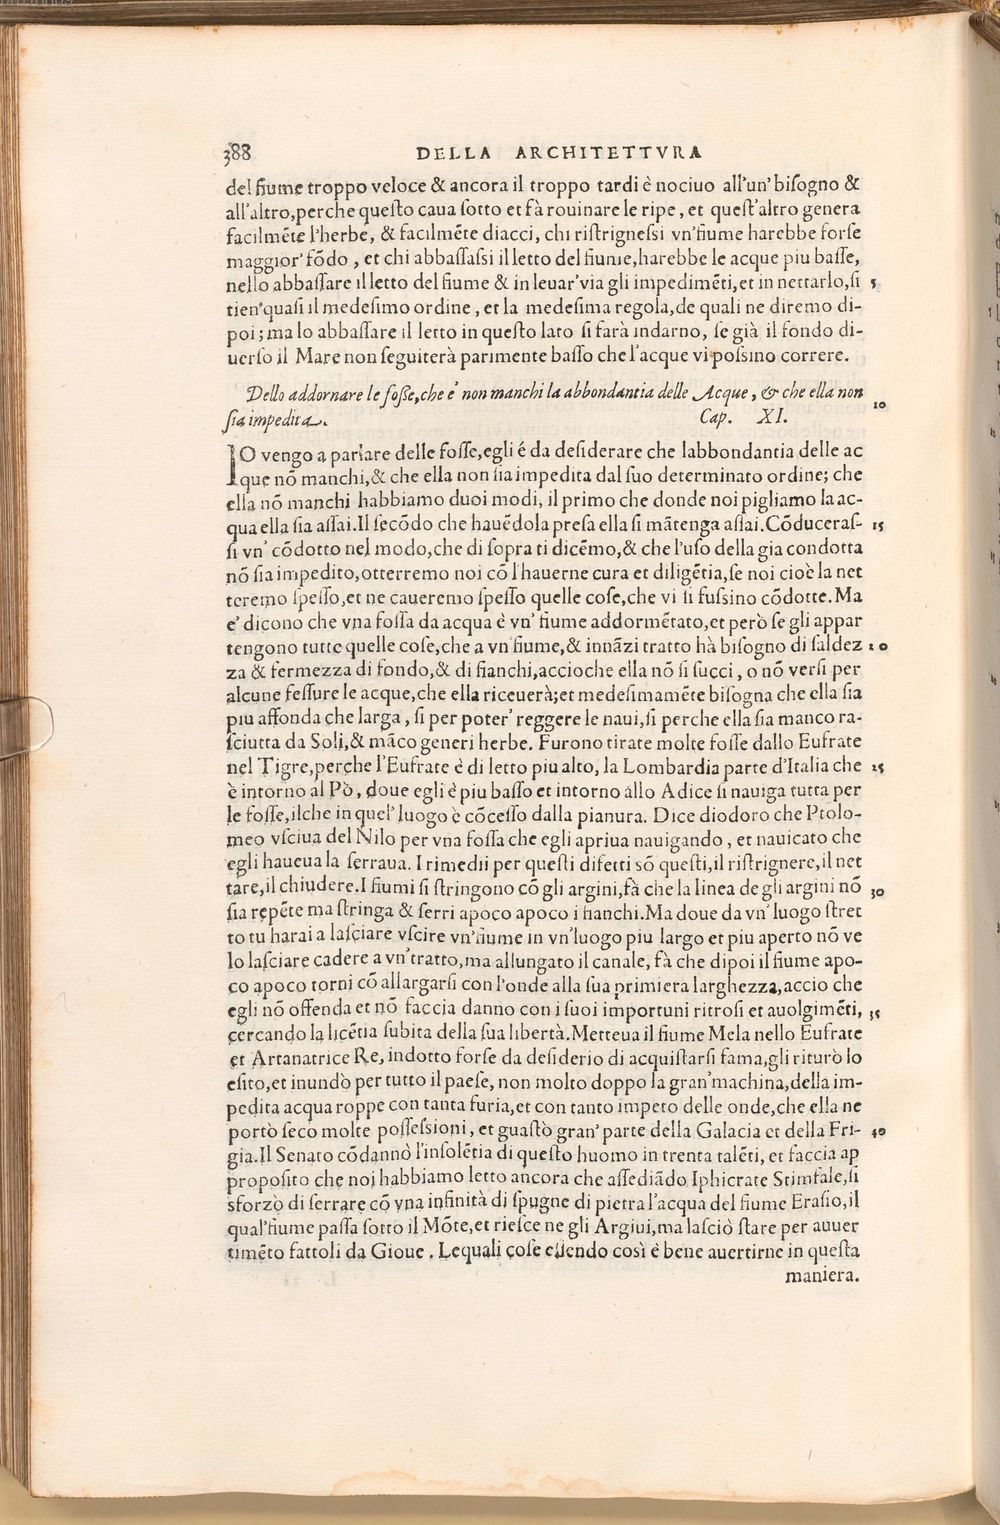 388 DELLA ARCHITETTVRA
del fiume troppo veloce & ancora il troppo tardi è nociuo all'un' biſogno &
all'altro,perche queſto caua ſotto et fà rouinare le ripe, et queſt'altro genera
facilmẽte l'herbe, & facilmẽte diacci, chi riſtrigneſsi vn'fiume harebbe forſe
maggior' fõdo , et chi abbaſſaſsi il letto del fiume,harebbe le acque piu baſſe,
nello abbaſſare il letto del fiume & in leuar'via gli impedimẽti,et in nettarlo,ſi 5
tien'quaſi il medeſimo ordine, et la medeſima regola,de quali ne diremo di-
poi;ma lo abbaſſare il letto in queſto lato ſi farà indarno, ſe già il fondo di-
uerſo il Mare non ſeguiterà parimente baſſo che l'acque vi poſsino correre.
Dello addornare le foſſe,che e' non manchi la abbondantia delle Acque, & che ella non 10
ſia impedita. Cap. XI.
IO vengo a parlare delle foſſe,egli é da deſiderare che labbondantia delle ac
que nõ manchi,& che ella non ſia impedita dal ſuo determinato ordine; che
ella nõ manchi habbiamo duoi modi, il primo che donde noi pigliamo la ac-
qua ella ſia aſſai.Il ſecõdo che hauẽdola preſa ella ſi mãtenga aſſai.Cõduceraſ- 15
ſi vn' cõdotto nel modo,che di ſopra ti dicẽmo,& che l'uſo della gia condotta
nõ ſia impedito,otterremo noi cõ l'hauerne cura et diligẽtia,ſe noi cioè la net
teremo ſpeſſo,et ne caueremo ſpeſſo quelle coſe,che vi ſi fuſsino cõdotte.Ma
e' dicono che vna foſſa da acqua è vn' fiume addormẽtato,et però ſe gli appar
tengono tutte quelle coſe,che a vn'fiume,& innãzi tratto hà biſogno di ſaldez 20
za & fermezza di fondo,& di fianchi,accioche ella nõ ſi ſucci, o nõ verſi per
alcune feſſure le acque,che ella riceuerà;et medeſimamẽte biſogna che ella ſia
piu affonda che larga, ſi per poter' reggere le naui,ſi perche ella ſia manco ra-
ſciutta da Soli,& mãco generi herbe. Furono tirate molte foſſe dallo Eufrate
nel Tigre,perche l'Eufrate è di letto piu alto, la Lombardia parte d'Italia che 25
è intorno al Pò, doue egli è piu baſſo et intorno allo Adice ſi nauiga tutta per
le foſſe,ilche in quel' luogo è cõceſſo dalla pianura. Dice diodoro che Ptolo-
meo vſciua del Nilo per vna foſſa che egli apriua nauigando, et nauicato che
egli haueua la ſerraua. I rimedii per queſti difetti sõ queſti,il riſtrignere,il net
tare,il chiudere.I fiumi ſi ſtringono cõ gli argini,fà che la linea de gli argini nõ 30
ſia repẽte ma ſtringa & ſerri apoco apoco i fianchi.Ma doue da vn' luogo ſtret
to tu harai a laſciare vſcire vn'fiume in vn'luogo piu largo et piu aperto nõ ve
lo laſciare cadere a vn'tratto,ma allungato il canale, fà che dipoi il fiume apo-
co apoco torni cõ allargarſi con l'onde alla ſua primiera larghezza,accio che
egli nõ offenda et nõ faccia danno con i ſuoi importuni ritroſi et auolgimẽti, 35
cercando la licẽtia ſubita della ſua libertà.Metteua il fiume Mela nello Eufrate
et Artanatrice Re, indotto forſe da deſiderio di acquiſtarſi fama,gli riturò lo
eſito,et inundò per tutto il paeſe, non molto doppo la gran'machina,della im-
pedita acqua roppe con tanta furia,et con tanto impeto delle onde,che ella ne
portò ſeco molte poſſeſsioni, et guaſtò gran' parte della Galacia et della Fri- 40
gia.Il Senato cõdannò l'inſolẽtia di queſto huomo in trenta talẽti, et faccia ap
propoſito che noi habbiamo letto ancora che aſſediãdo Iphicrate Stimfale,ſi
sforzò di ſerrare cõ vna infinità di ſpugne di pietra l'acqua del fiume Eraſio,il
qual'fiume paſſa ſotto il Mõte,et rieſce ne gli Argiui,ma laſciò ſtare per auuer
timẽto fattoli da Gioue. Lequali coſe eſſendo così è bene auertirne in queſta
maniera.